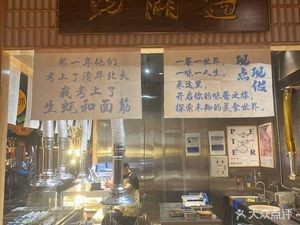 那一年他们
考上了清华北大
我考上了
生蚝和面筋
一餐一世界,
一味一人生。
来这里,
开启你的味蕾之旅,
探索未知的美食世界。
现点现做
PETER
大众点评